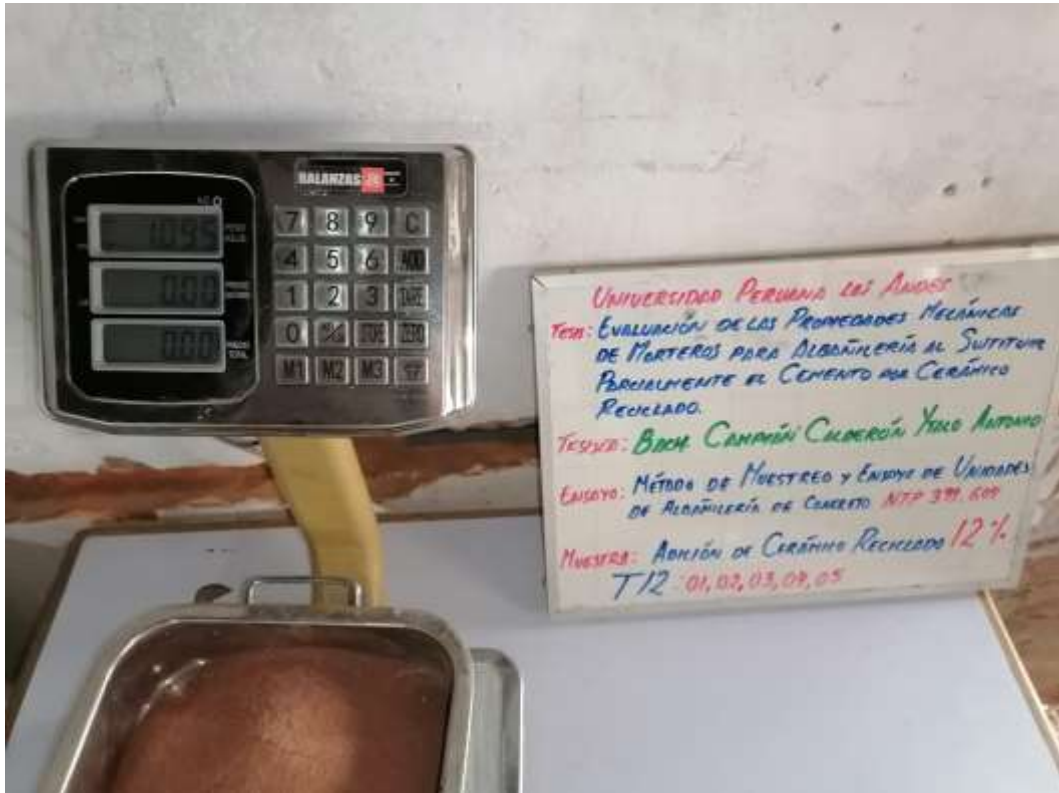 BALANZAS
1.095
0.00
0.00
7 8 9 C
4 5 6 ADD
1 2 3 TARE
0 ZERO
M1 M2 M3
UNIVERSIDAD PERUANA LOS ANDES
TESIS: EVALUACIÓN DE LAS PROPIEDADES MECÁNICAS
DE MORTEROS PARA ALBAÑILERÍA AL SUTITUIR
PARCIALMENTE EL CEMENTO POR CERÁMICO
RECICLADO.
TESISTA: BACH. CALDERÓN YTALO ANTONIO
ENSAYO: MÉTODO DE MUESTREO Y ENSAYO DE UNIDADES
DE ALBAÑILERÍA DE CONCRETO NTP 399.604
MUESTRA: ADICIÓN DE CERÁMICO RECICLADO 12%
T12: 01, 02, 03, 04, 05